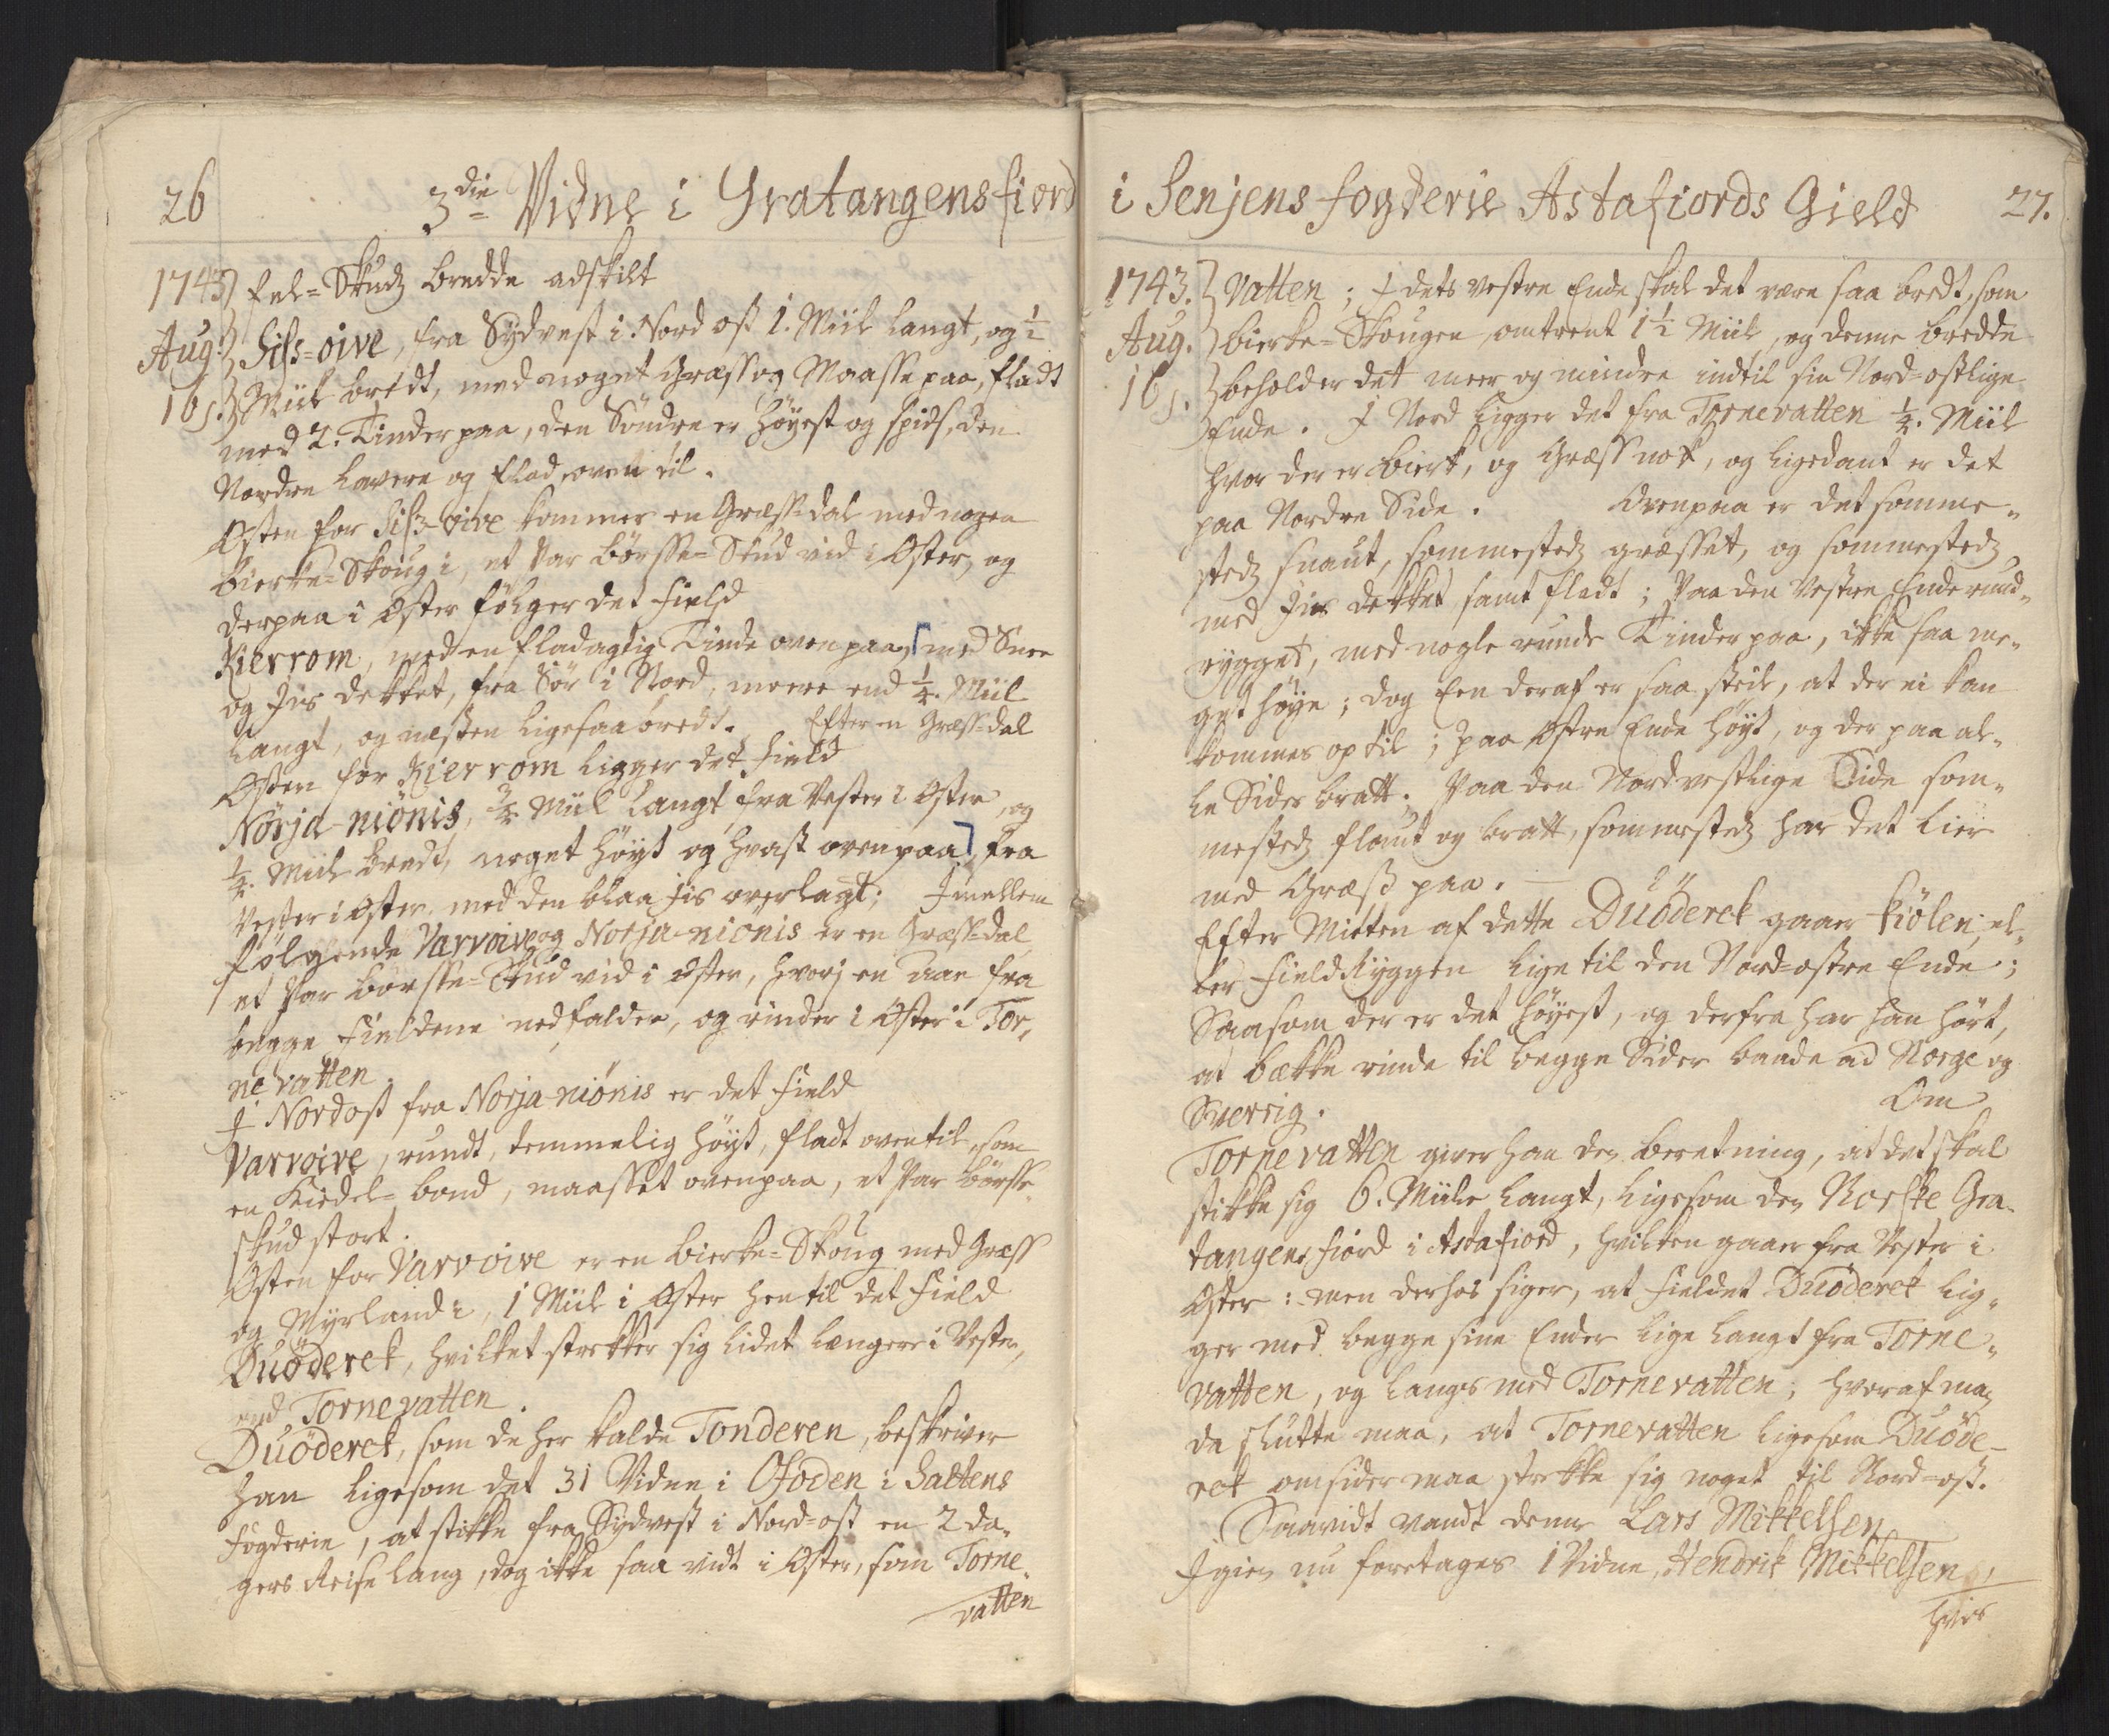 26
3die Vidne i Gratangensfiord
1743
Aug.
16.
fel-Skudz bredde adskilt
Siss-oive, fra Sydvest i Nordost 1. Miil langt, og ½
Miil bredt, med noget Græss og Maasse paa, fladt
med 2. Tinder paa, den Söndre er höyest og spids, den
Nordre lavere og flad oven til.
Osten for Siss-oive kommer en Græss-dal med nogen
bierke-Skoug i, et Par börsse-Skud vid i Oster, og
derpaa i Oster fölger det Field
Kierrom, med en fladagtig Tinde oven paa, med Snee
og Jis dekket, fra Sör i Nord, meere end ¼. Miil
langt, og nesten ligesaa bredt. Efter en Græss-dal
Osten for Kierrom ligger det Field
Nörja-niönis, ¾ Miil langt fra Vester i Oster, og
½. Miil bredt, noget höyt og hvast ovenpaa, fra
Vester i Oster, med den blaa Jis overlagt; Jmellem
fölgende Varvoive og Norja-niönis er en Græss-dal
et Par börsse-Skud vid i Oster, hvorj en Aae fra
begge Fieldene nedfalder, og rinder i Oster i Tor-
ne vatten.
J Nordost fra Norja niönis er det Field
Varvoive, rundt, temmelig höyt, fladt oventil, som
en Kiedel-bond, maasset ovenpaa, et Par börsse-
skud stort.
Osten for Varvoive er en bierke-Skoug med Græss
og Myrland i, 1 Miil i Oster hen til det Field
Duöderek, hvilket strekker sig lidet længere i Vester,
end Tornevatten.
Duöderek, som de her kalde Tonderen, beskriver
han ligesom det 31 Vidne i Ofoden i Saltens
Fogderie, at stikke fra Sydvest i Nord-ost en 2 da-
gers Reise lang, dog ikke saa vidt i Oster, som Torne-
vatten
i Senjens fogderie Astafiords Gield
27.
1743.
Aug.
16.
Vatten; J dets Vestre Ende skal det være saa bredt, som
bierke-Skougen, omtrent 1½ Miil, og denne bredde
beholder det meer og mindre indtil sin Nord-ostlige
Ende. J Nord ligger det fra Tornevatten ¼. Miil
hvor der er birk, og Græss nok, og ligedant er det
paa Nordre Side. Ovenpaa er det somme-
stedz snaut, sommestedz græsset, og sommestedz
med Jis dekket samt fladt; Paa den Vestre Ende rund-
rygget, med nogle runde Tinder paa, ikke saa me-
get höye; dog Een deraf er saa steil, at der ei kan
kommes op til; paa Ostre Ende höyt, og der paa al-
le Sider bratt. Paa den Nordvestlige Side som-
mestedz flaut og bratt, sommestedz har det Lier
med Græss paa.
Efter Mitten af dette Duöderek gaaer Kiölen, el-
ler FieldRyggen lige til den Nord-ostre Ende;
Saasom der er det höyest, og derfra har han hört,
at bække rinde til begge Sider baade ad Norge og
Sverrig. Om
Tornevatten giver han den beretning, at det skal
stikke sig 6. Miile langt, ligesom den Norske Gra-
tangens fiord i Astafiord, hvilken gaaer fra Vester i
Oster: men derhos siger, at Fieldet Duöderek lig-
ger med begge sine Ender lige langt fra Torne-
vatten, og langs med Tornevatten; hvoraf man
da slutte maa, at Tornevatten ligesom Duöde-
rek omsider maa strekke sig noget til Nord-ost.
Saavidt vandt denne Lars Mikkelsen
Jgien nu foretages 1 Vidne, Hendrik Mikkelsen,
hvis